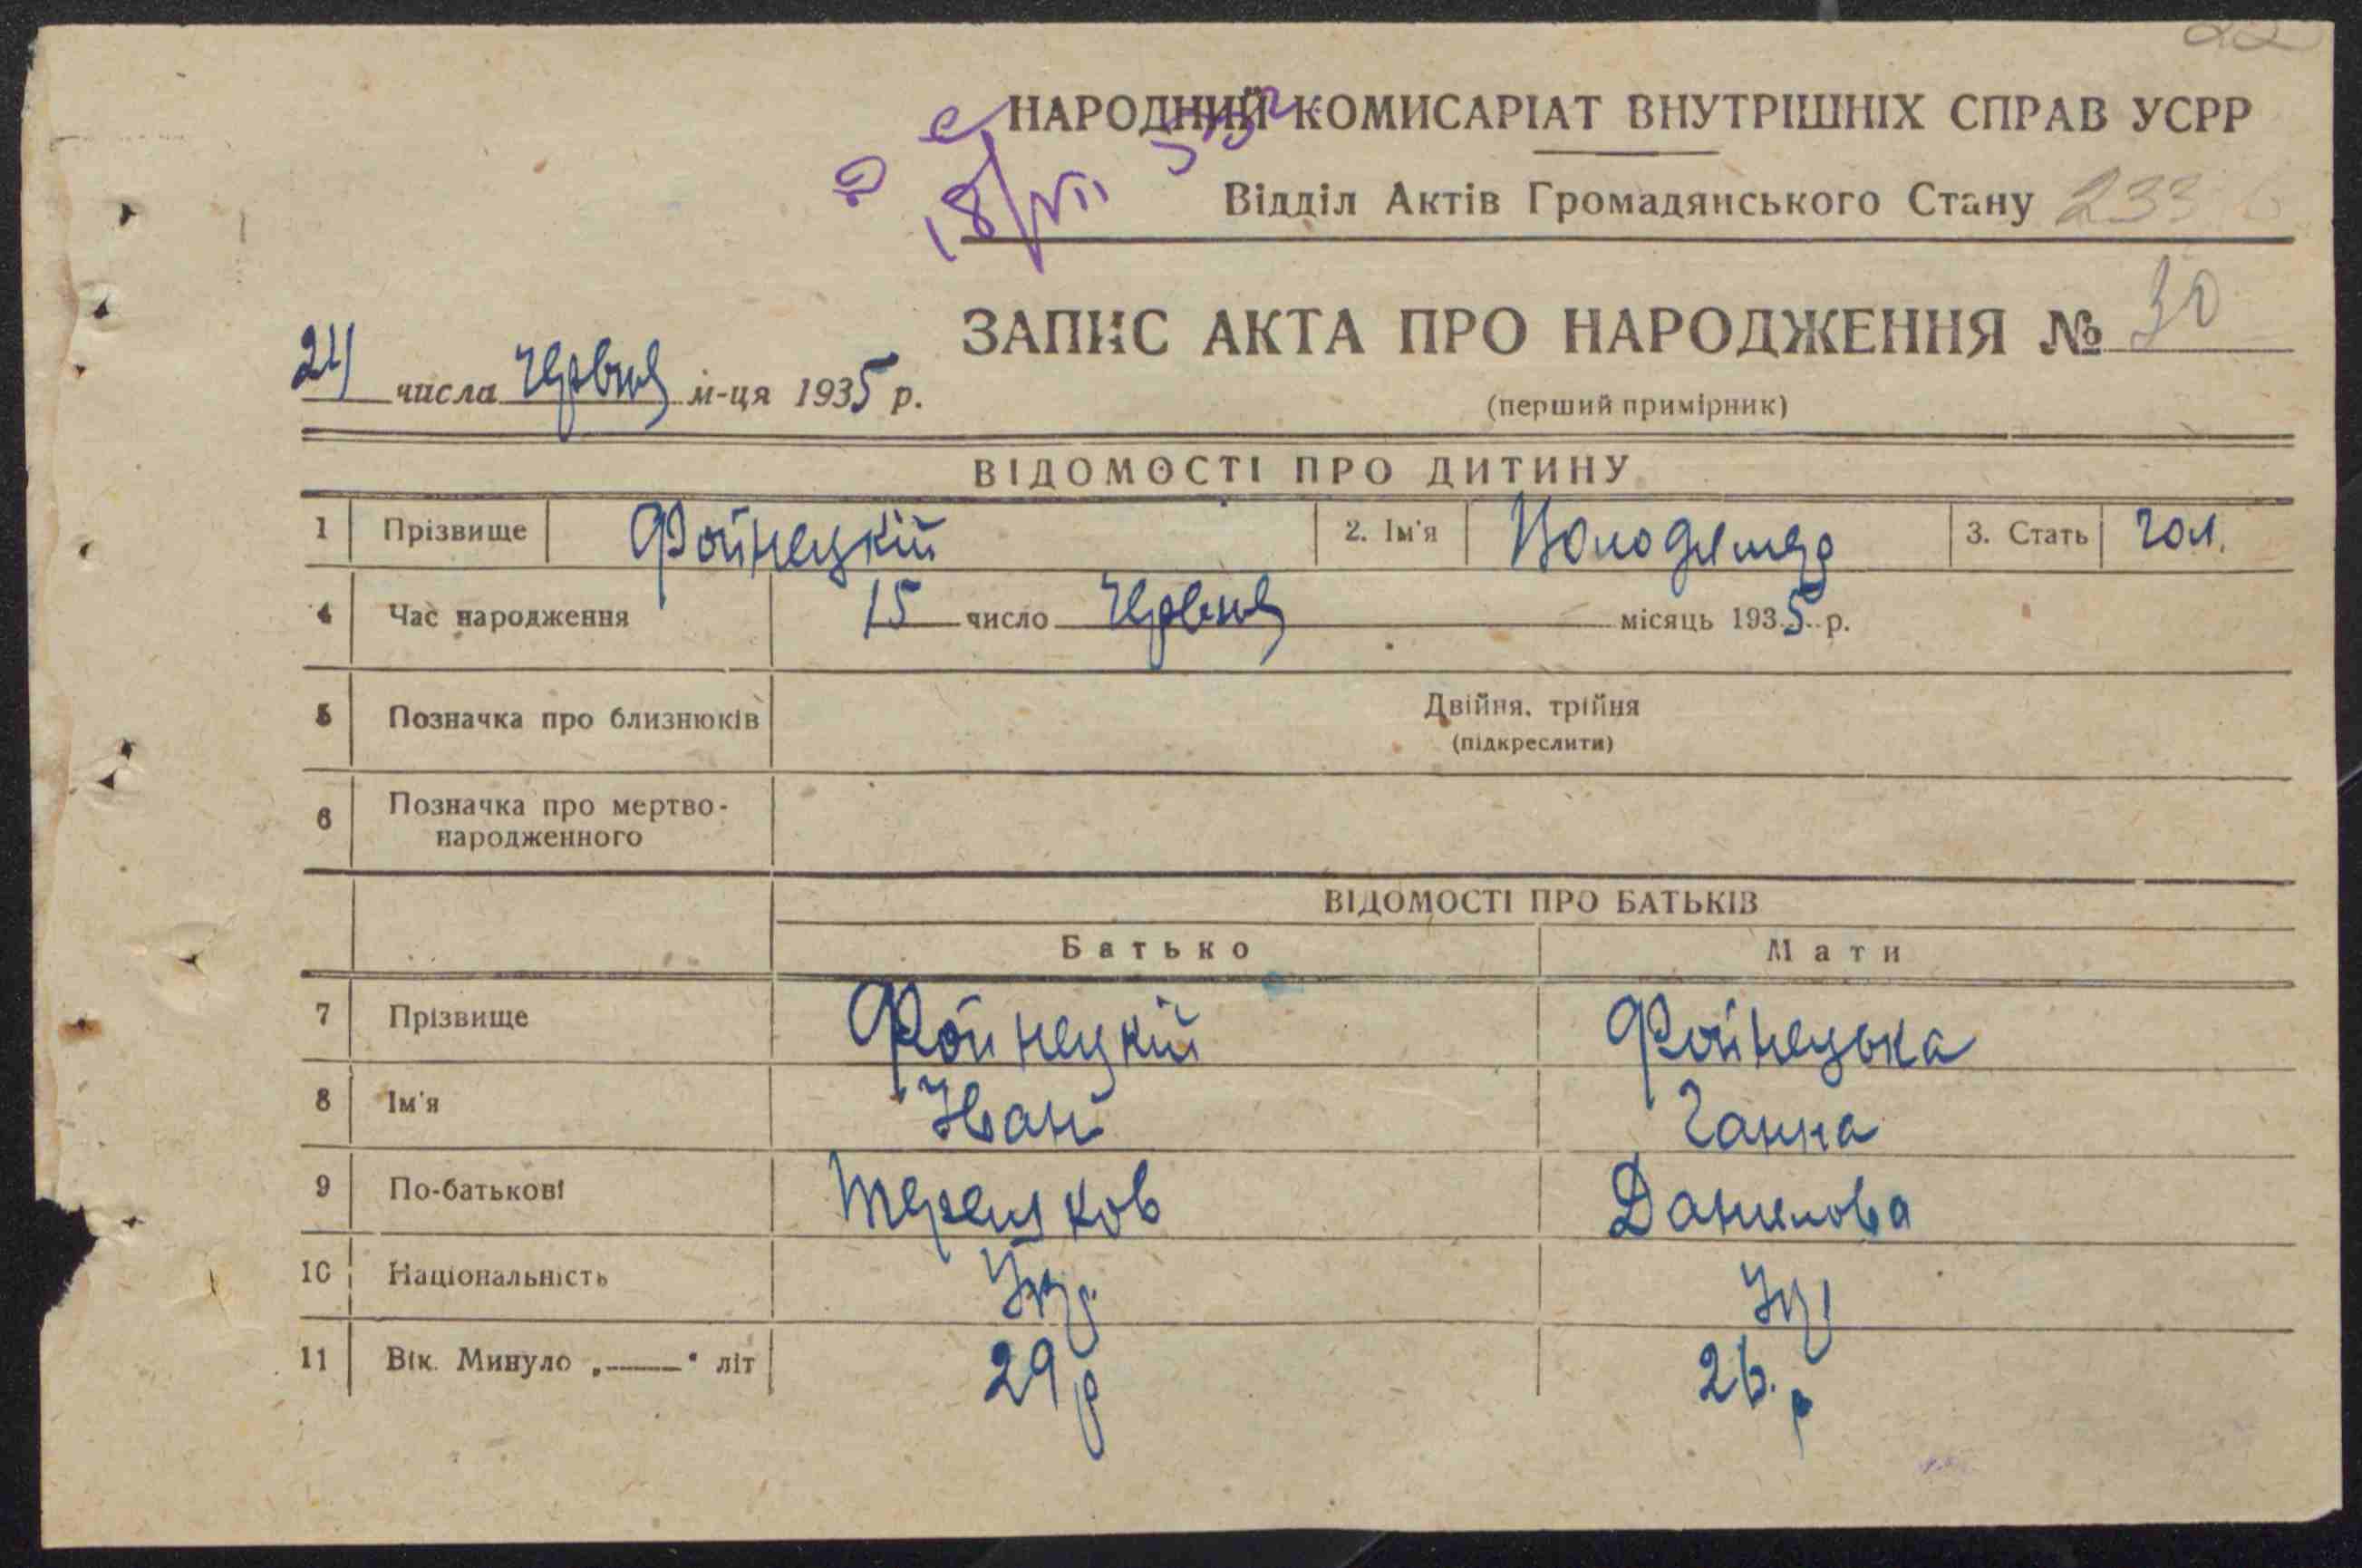 22
НАРОДНИЙ КОМИСАРІАТ ВНУТРІШНІХ СПРАВ УСРР
18/VII
Відділ Актів Громадянського Стану 233
ЗАПИС АКТА ПРО НАРОДЖЕННЯ № 30
24 числа Червня м-ця 1935 р.
(перший примірник)
ВІДОМОСТІ ПРО ДИТИНУ
1 Прізвище Фойнецкій 2. Ім'я Володимер 3. Стать чол.
4 Час народження 15 число Червня місяць 1935 р.
5 Позначка про близнюків Двійня, трійня
(підкреслити)
6 Позначка про мертво-
народженного
ВІДОМОСТІ ПРО БАТЬКІВ
Батько Мати
7 Прізвище Фойнецкій Фойнецька
8 Ім'я Іван Ганна
9 По-батькові Данилова
10 Національність Укр. Укр
11 Вік. Минуло „——“ літ 29 р 26. р